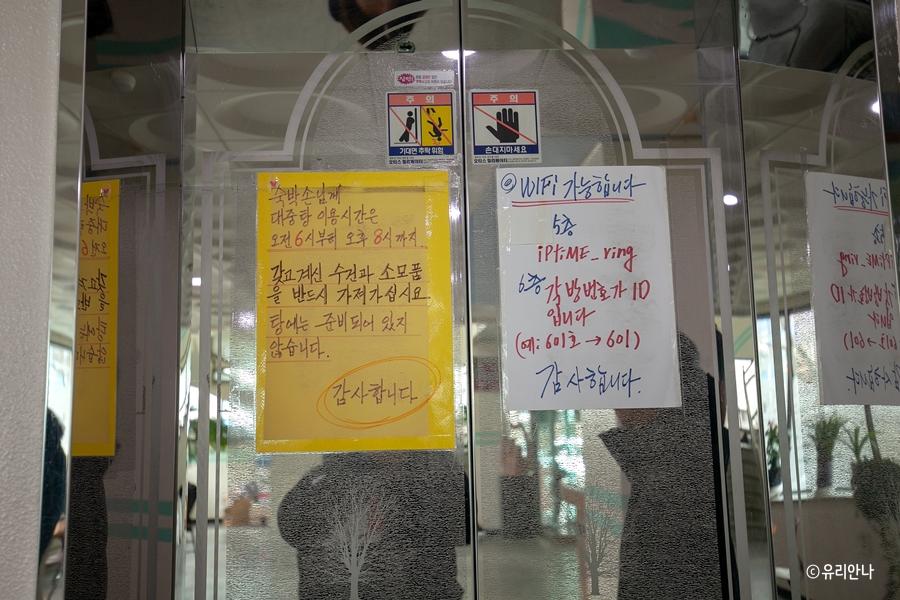 주의
기대면 추락 위험
주의
손대지마세요
숙박손님께
대중탕 이용시간은
오전 6시부터 오후 8시까지.
갖고계신 수건과 소모품
을 반드시 가져가십시요.
탕에는 준비되어 있지
않습니다.
감사합니다
WIFi 가능합니다
5층
iPtiME_ring
6층 각 방번호가 ID
입니다
(예: 601호 → 601)
감사합니다.
ⓒ유리안나